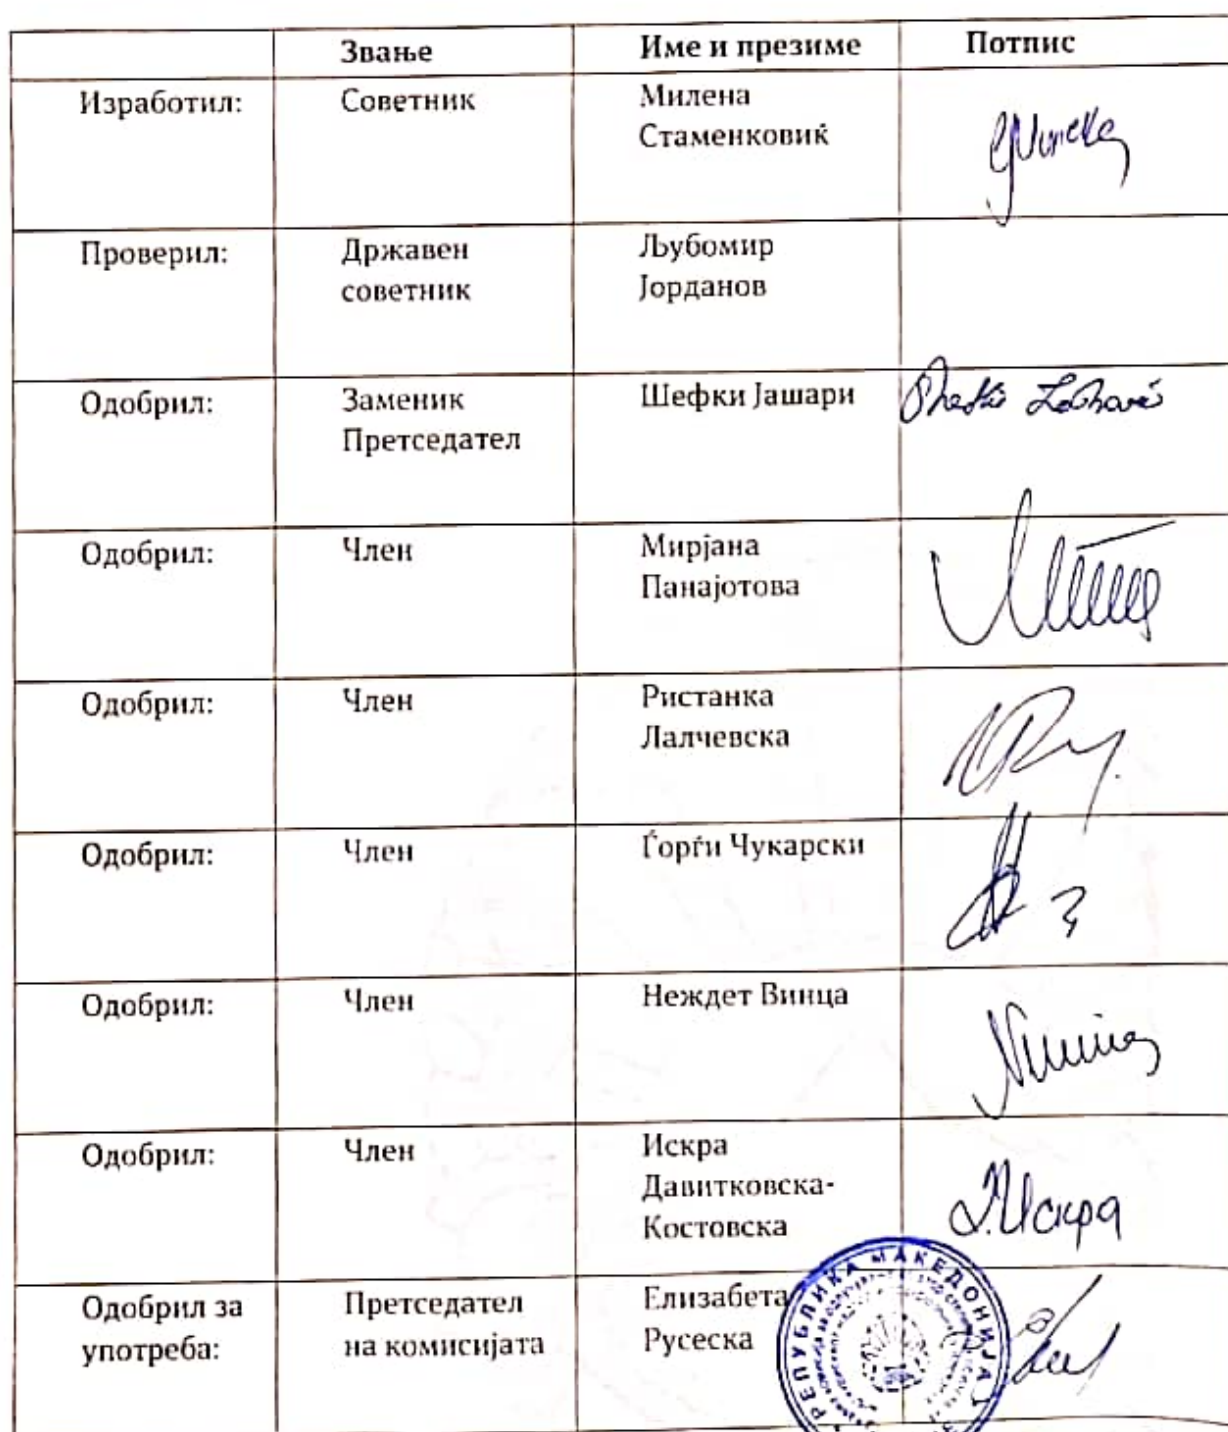 Звање Име и презиме Потпис
Изработил: Советник Милена
Стаменковиќ
Проверил: Државен Љубомир
советник Јорданов
Одобрил: Заменик Шефки Јашари
Претседател
Одобрил: Член Мирјана
Панајотова
Одобрил: Член Ристанка
Лалчевска
Одобрил: Член Ѓорѓи Чукарски
Одобрил: Член Неждет Винца
Одобрил: Член Искра
Давитковска-
Костовска
Искра
Одобрил за Претседател Елизабета
употреба: на комисијата Русеска
РЕПУБЛИКА МАКЕДОНИЈА